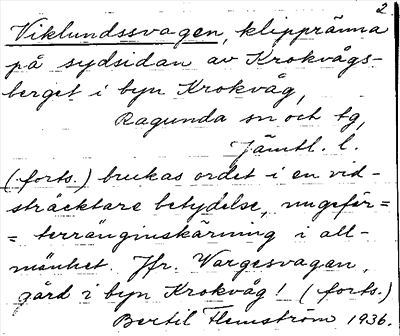 2
Viklundssvagen, klippränna
på sydsidan av Krokvågs-
berget i byn Krokvåg,
Ragunda sn och tg,
Jämtl. l.
(forts.) brukas ordet i en vid-
sträcktare betydelse, ungefär =
= terränginskärning i all-
mänhet. Jfr. Vargesvagen,
gård i byn Krokvåg! (forts.)
Bertil Flemström 1936.